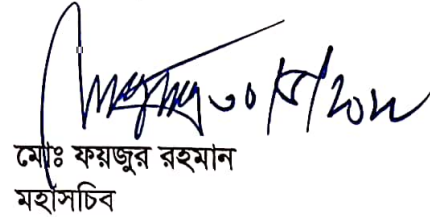 ৩০/৮/২০২২
মোঃ ফয়জুর রহমান
মহাসচিব